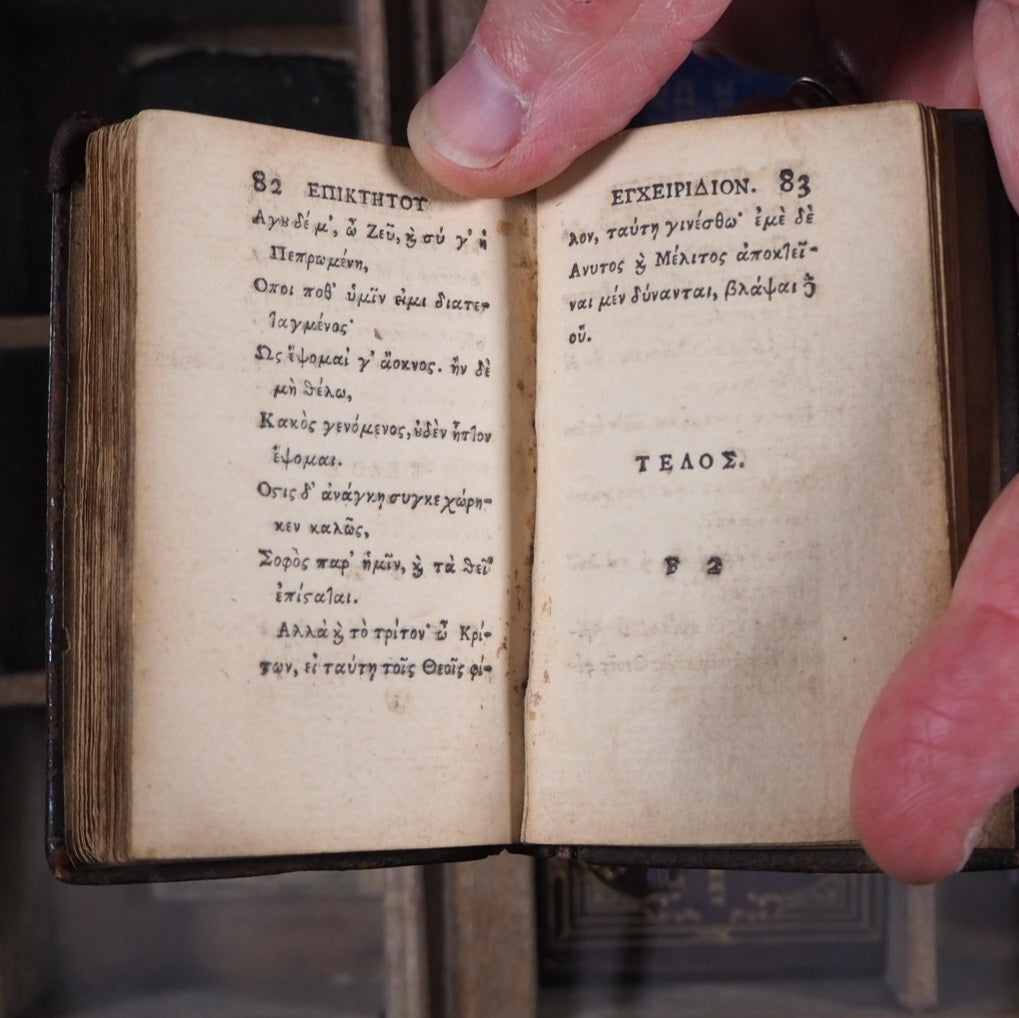 82 ΕΠΙΚΤΗΤΟΥ
Αγȣ δέ μ', ὦ Ζεῦ, ϗ σύ γ' ἡ
Πεπρωμένη,
Οποι ποθ' ὑμῖν εἰμι διατε-
ταγμένος·
Ως ἕψομαί γ' ἄοκνος. ἢν δὲ
μὴ θέλω,
Κακὸς γενόμενος, ȣδὲν ἧττον
ἕψομαι.
Οϛις δ' ἀνάγκη συγκεχώρη-
κεν καλῶς,
Σοφὸς παρ' ἡμῖν, ϗ τὰ θεῖ'
ἐπίϛαται.
Αλλὰ ϗ τὸ τρίτον· ὦ Κρί-
των, εἰ ταύτη τοῖς Θεοῖς φί-
ΕΓΧΕΙΡΙΔΙΟΝ. 83
λον, ταύτη γινέσθω· ἐμὲ δὲ
Ανυτος ϗ Μέλιτος ἀποκτεῖ-
ναι μέν δύνανται, βλάψαι
οὔ.
ΤΕΛΟΣ.
F 2